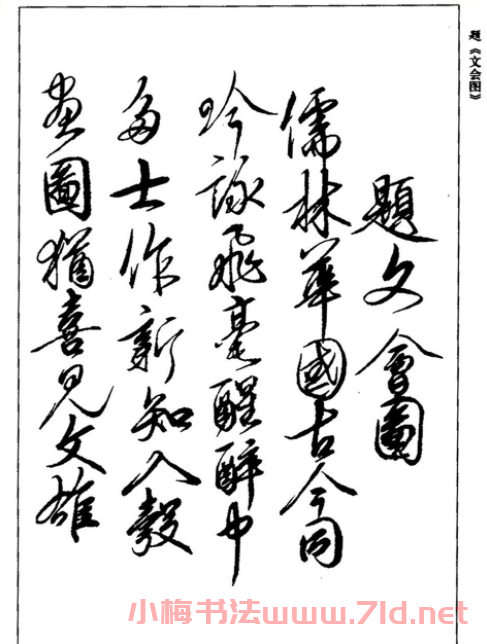 题《文会图》
題文會圖
儒林華國古今同
吟詠飛毫醒醉中
多士作新知入彀
畫圖猶喜見文雄
小梅书法www.7ld.net